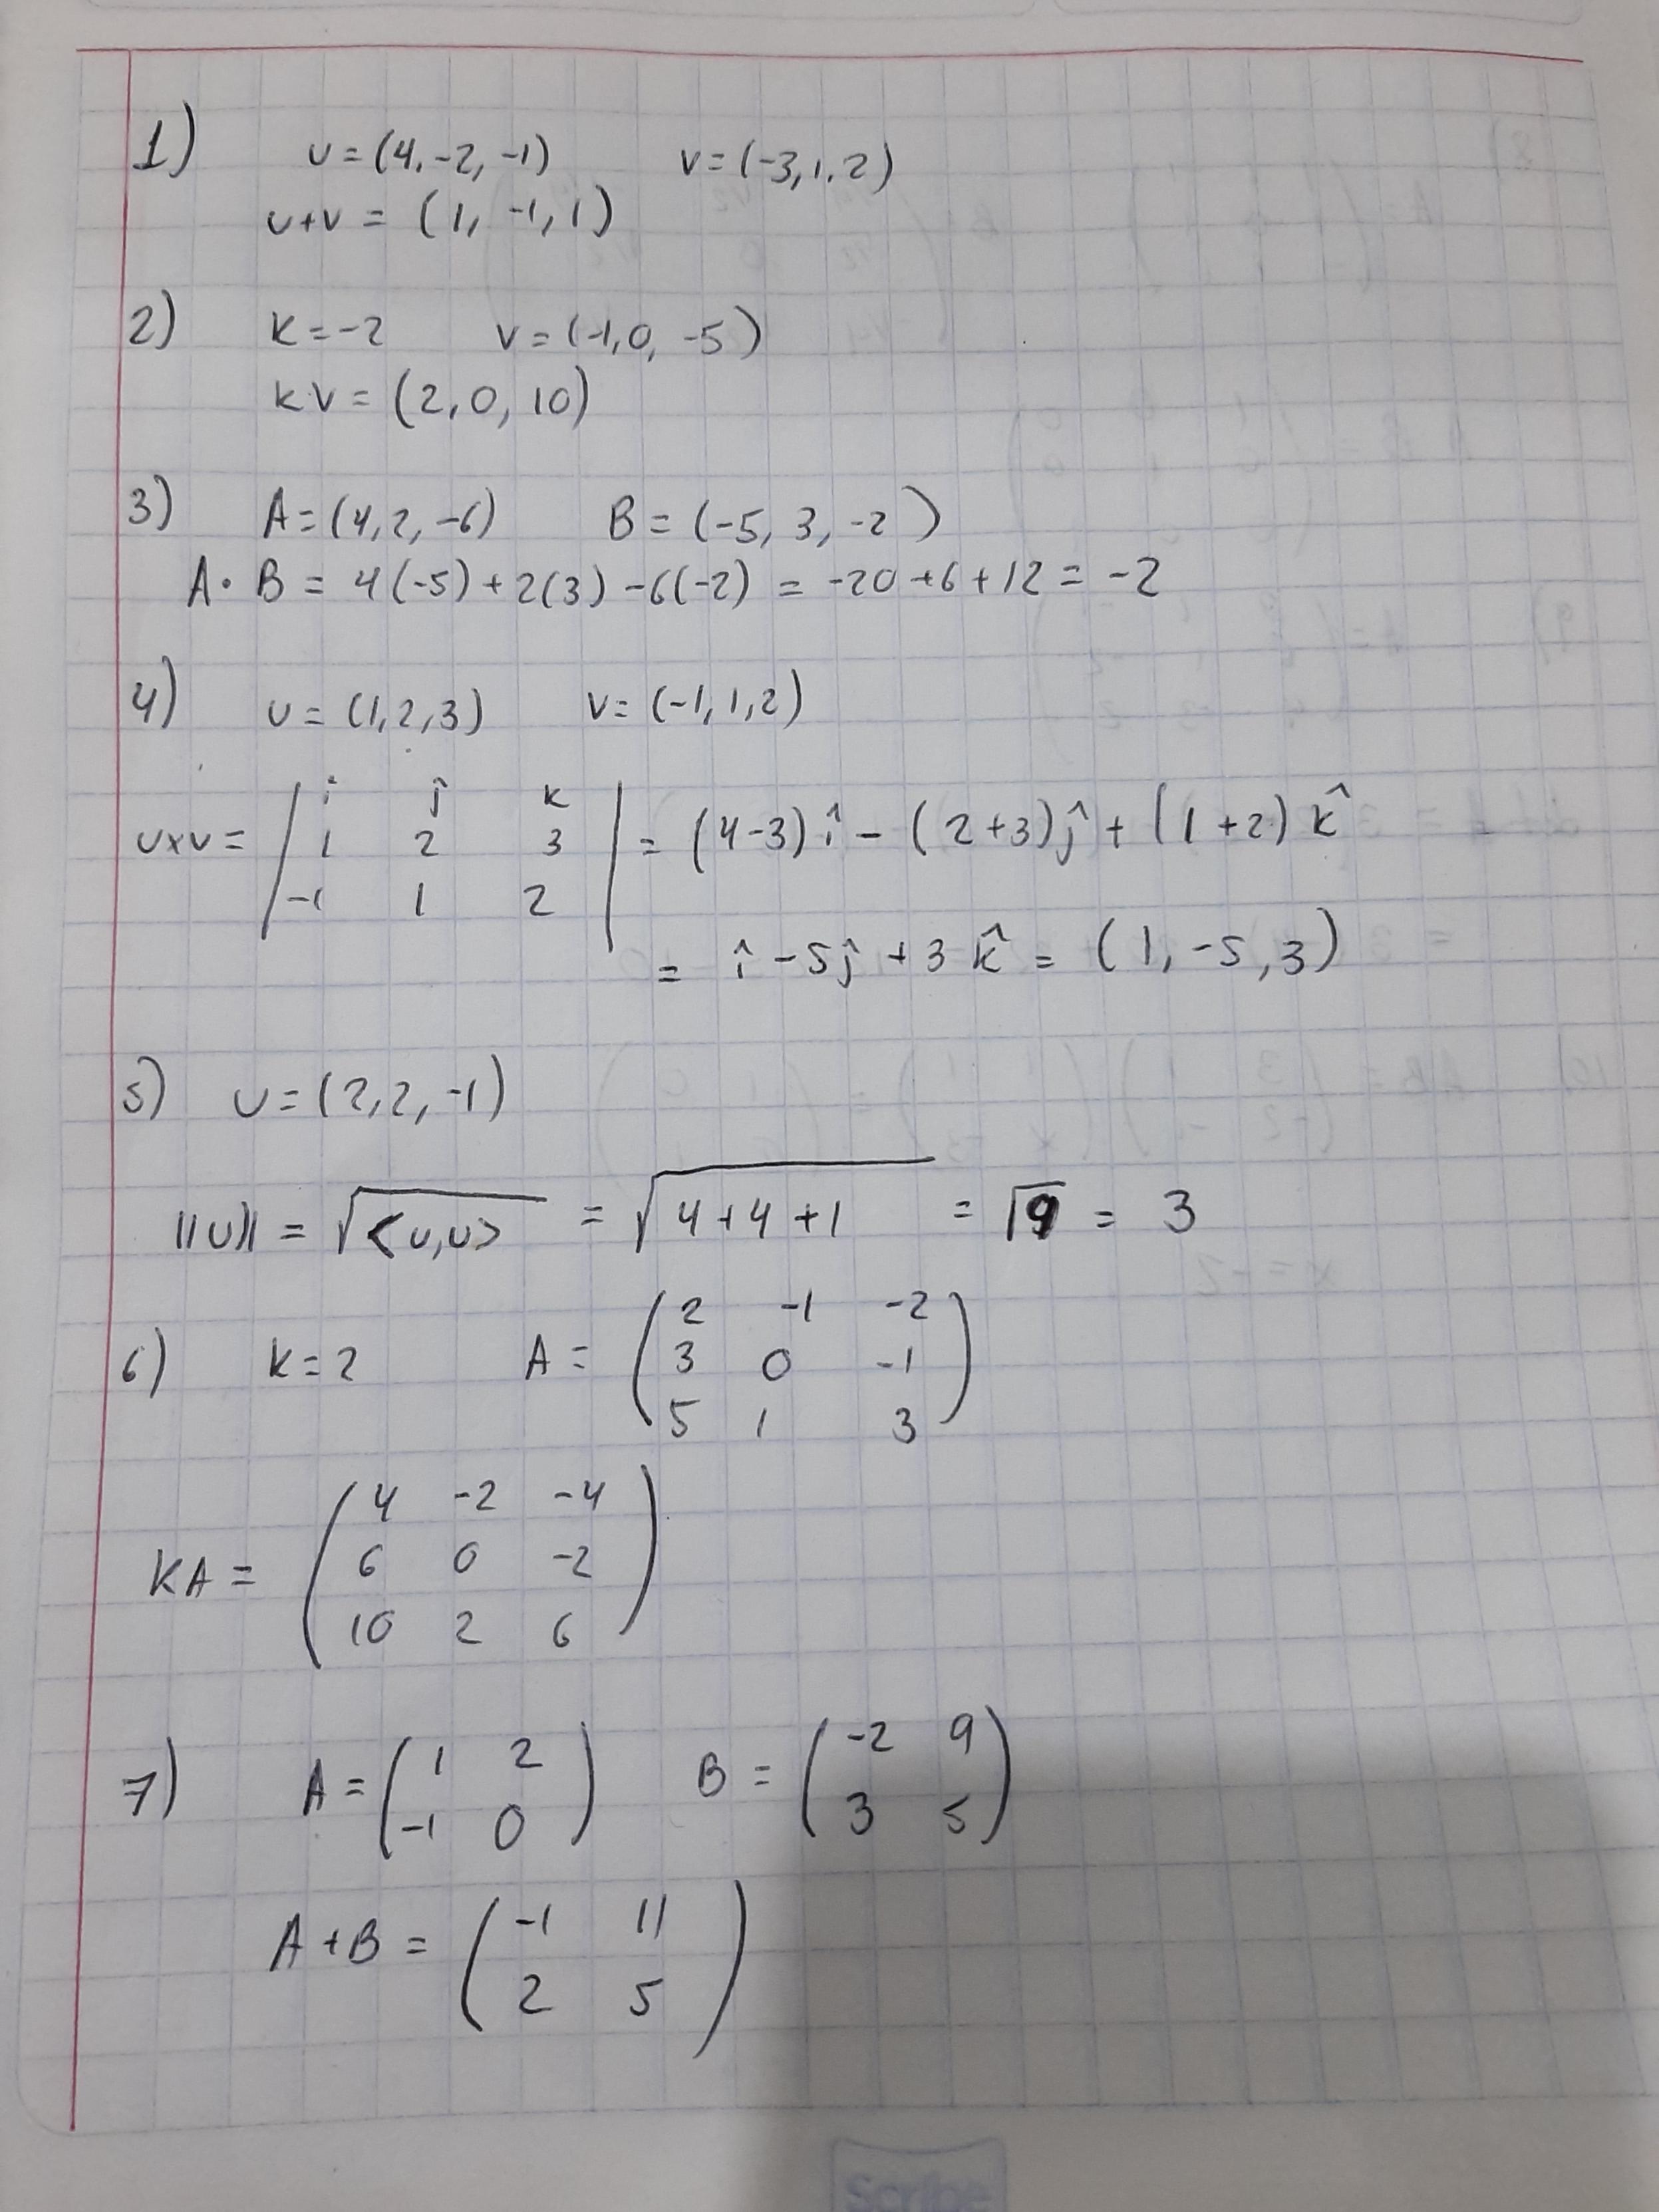 1) u = (4, -2, -1) v = (-3, 1, 2)
u+v = (1, -1, 1)
2) k = -2 v = (-1, 0, -5)
kv = (2, 0, 10)
3) A = (4, 2, -6) B = (-5, 3, -2)
A · B = 4(-5) + 2(3) - 6(-2) = -20 + 6 + 12 = -2
4) u = (1, 2, 3) v = (-1, 1, 2)
i ĵ k
uxv = | 1 2 3 | = (4-3) î - (2+3) ĵ + (1+2) k̂
-1 1 2
= î - 5ĵ + 3k̂ = (1, -5, 3)
5) u = (2, 2, -1)
||u|| = √<u,u> = √4+4+1 = √9 = 3
2 -1 -2
6) k = 2 A = ( 3 0 -1 )
5 1 3
4 -2 -4
KA = ( 6 0 -2 )
10 2 6
7) A = ( 1 2 ) B = ( -2 9 )
-1 0 3 5
A + B = ( -1 11 )
2 5
Scribe